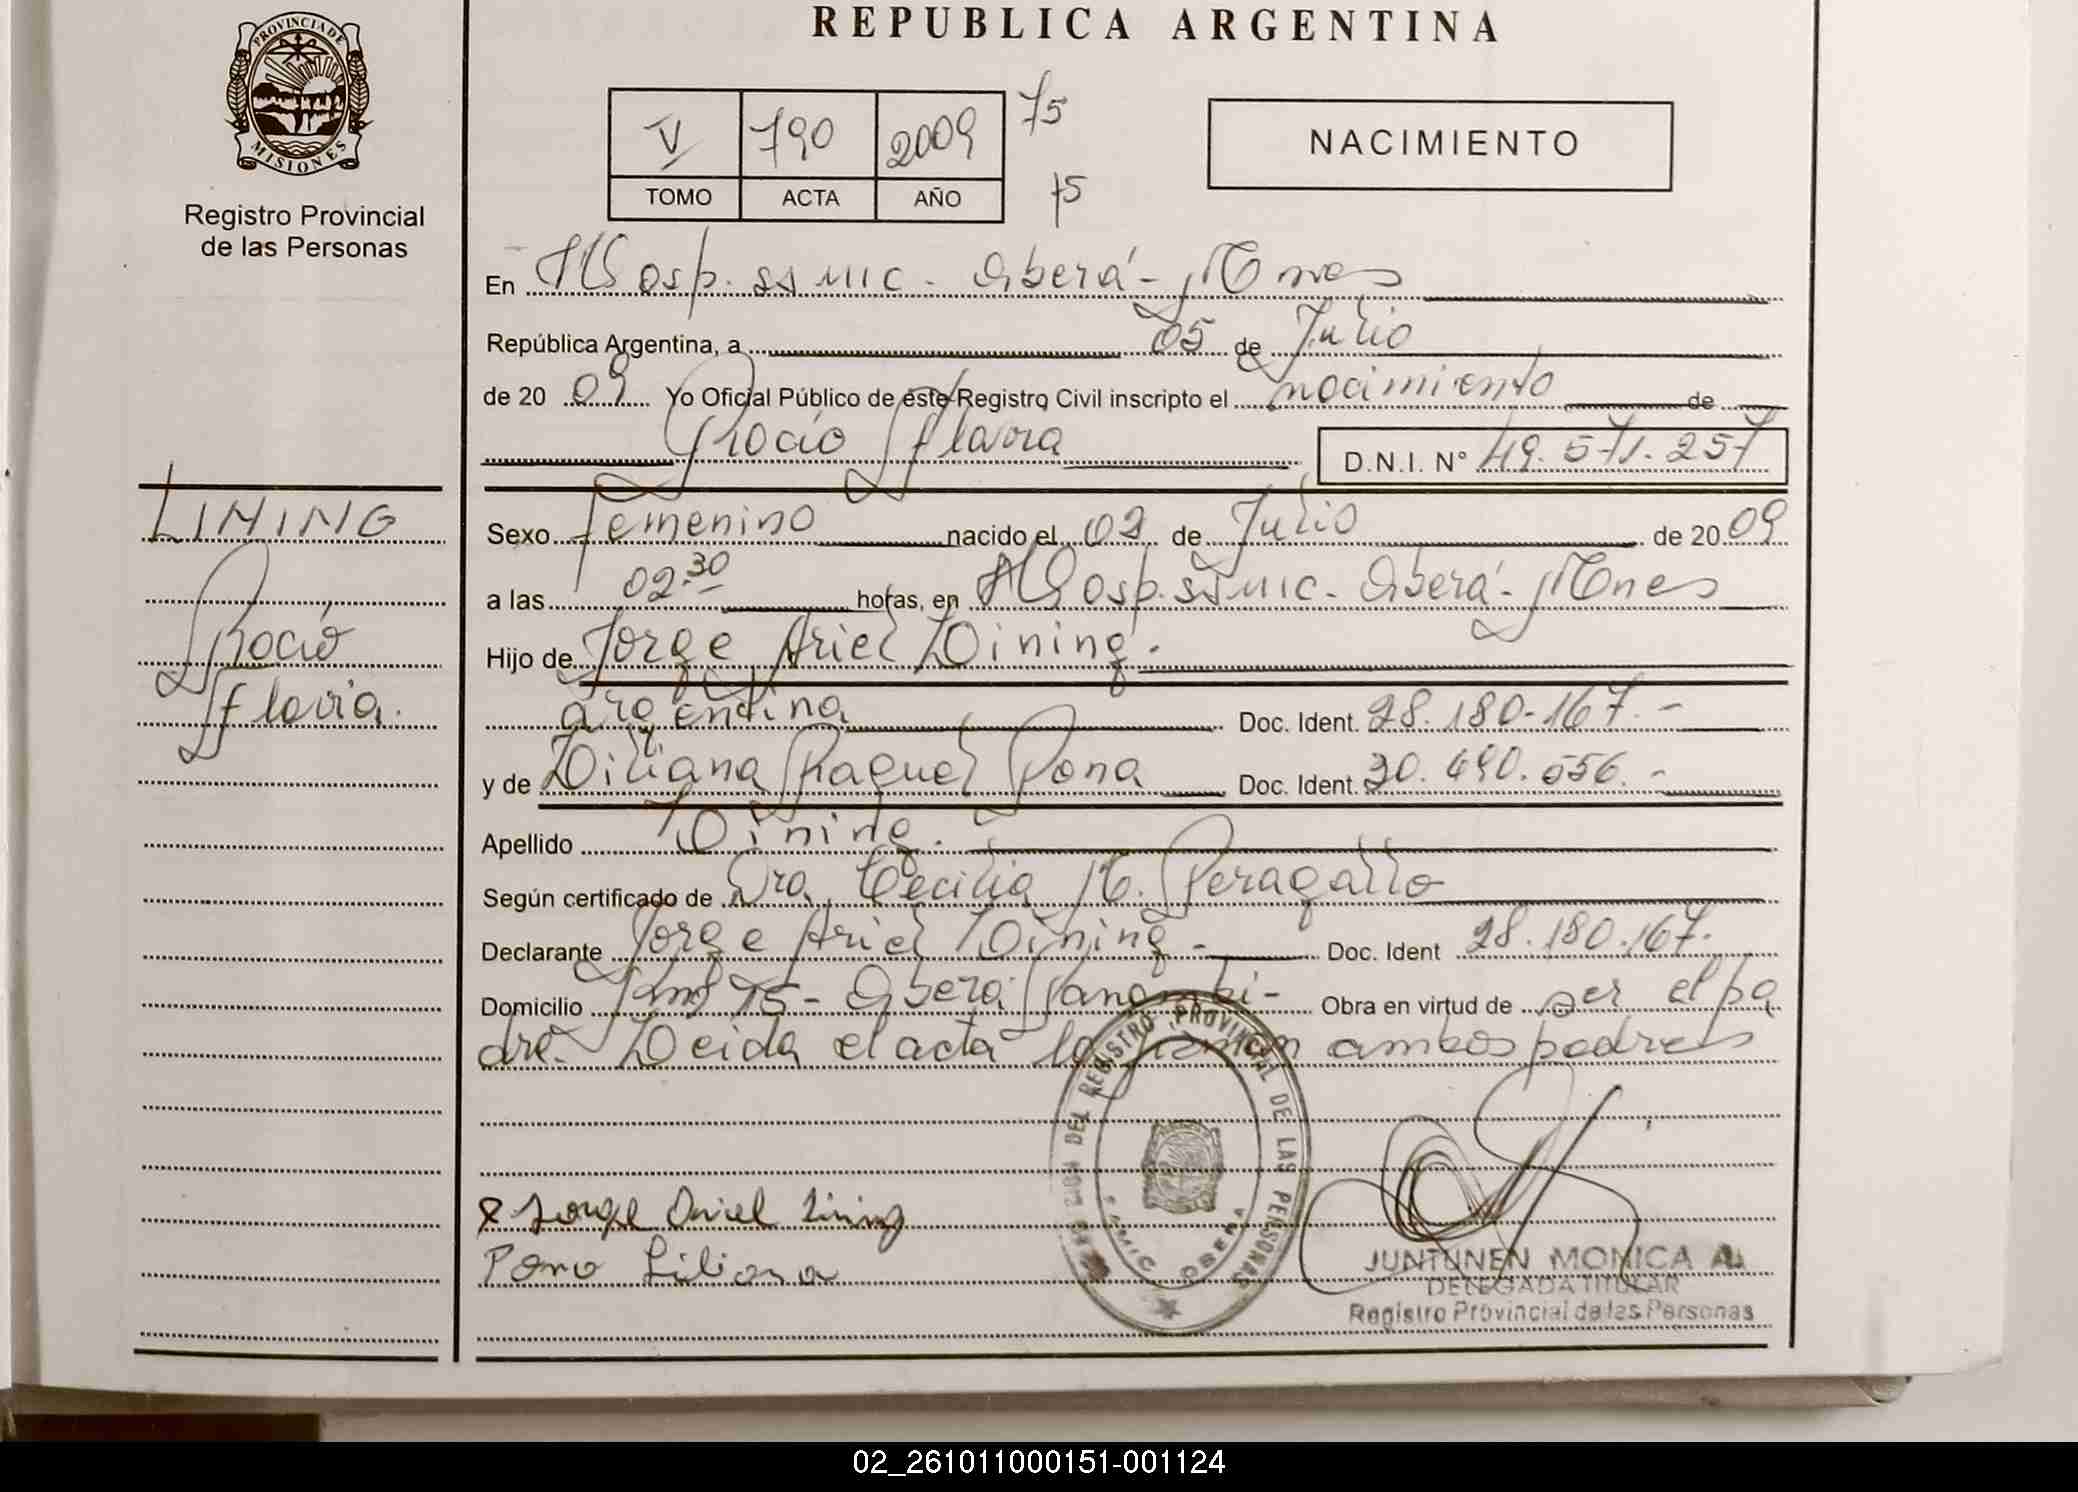 REPUBLICA ARGENTINA
PROVINCIA DE
MISIONES
Registro Provincial
de las Personas
V 790 2009 75
TOMO ACTA AÑO 75
NACIMIENTO
En Hosp. ssmic. Oberá - Mnes
República Argentina, a 05 de Julio
de 20 09 Yo Oficial Público de este Registro Civil inscripto el nacimiento de
Rocio Flavia D.N.I. N° 49.571.257
LINING
Rocio
Flavia.
Sexo femenino nacido el 02 de Julio de 20 09
a las 02.30 horas, en Hosp. ssmic. Oberá - Mnes
Hijo de Jorge Ariel Lining.
argentina Doc. Ident. 28.180.167.-
y de Liliana Raquel Pona Doc. Ident. 30.490.556.-
Apellido Lining.
Según certificado de Dra Cecilia M. Peragallo
Declarante Jorge Ariel Lining - Doc. Ident 28.180.167.
Domicilio Km 75 - Obera Panambi - Obra en virtud de ser el pa
dre. Leida el acta la firman ambos padres
Jorge Ariel Lining
Pona Liliana
DEL REGISTRO PROVINCIAL DE LAS PERSONAS
SSMIC OBERA
JUNTUNEN MONICA A.
DELEGADA TITULAR
Registro Provincial de las Personas
02_261011000151-001124